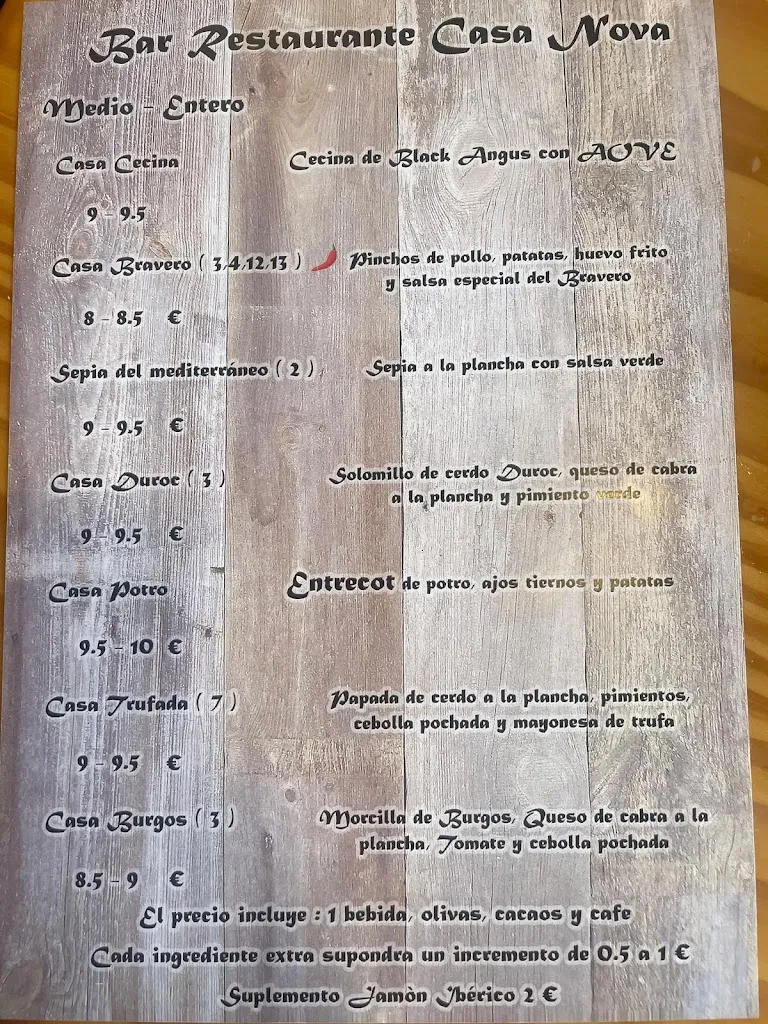 Bar Restaurante Casa Nova
Medio - Entero
Casa Cecina
Cecina de Black Angus con AOVE
9 - 9.5
Casa Bravero ( 3,4,12,13 )
Pinchos de pollo, patatas, huevo frito
y salsa especial del Bravero
8 - 8.5 €
Sepia del mediterráneo ( 2 )
Sepia a la plancha con salsa verde
9 - 9.5 €
Casa Duroc ( 3 )
Solomillo de cerdo Duroc, queso de cabra
a la plancha y pimiento verde
9 - 9.5 €
Casa Potro
Entrecot de potro, ajos tiernos y patatas
9.5 - 10 €
Casa Trufada ( 7 )
Papada de cerdo a la plancha, pimientos,
cebolla pochada y mayonesa de trufa
9 - 9.5 €
Casa Burgos ( 3 )
Morcilla de Burgos, Queso de cabra a la
plancha, Tomate y cebolla pochada
8.5 - 9 €
El precio incluye : 1 bebida, olivas, cacaos y cafe
Cada ingrediente extra supondra un incremento de 0.5 a 1 €
Suplemento Jamòn Ibérico 2 €